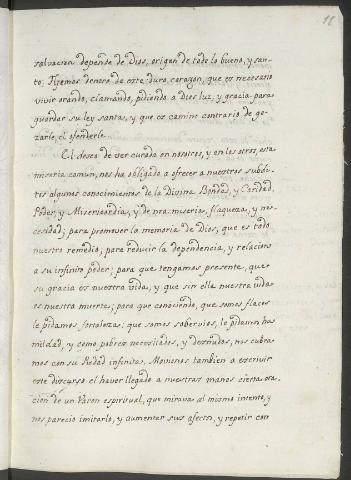 salvacion depende de Dios, origen de todo lo bueno, y san-
to; Fixemos dentro de este duro corazon, que es necesario
vivir orando, clamando, pidiendo a Dios luz, y gracia para
guardar su ley santa, y que es camino contrario de go-
zarle, el ofenderle.
El deseo de ver curada en nosotros, y en los otros, esta
miseria comun, nos ha obligado a ofrecer a nuestros subdi-
tos algunos conocimientos de la Divina Bondad, y Caridad,
Poder, y Misericordia, y de nra. miseria, flaqueza, y ne-
cesidad; para promover la memoria de Dios, que es todo
nuestro remedio; para reducir la dependencia, y relacion
a su infinito poder; para que tengamos presente, que
su gracia es nuestra vida, y que sin ella nuestra vida
es nuestra muerte; para que conociendo, que somos flacos
le pidamos, fortaleza: que somos sobervios, le pidamos hu
mildad, y como pobres necesitados, y desnudos, nos cubra-
mos con su Piedad infinita. Movienos tambien a escrivir
este discurso el haver llegado a nuestras manos cierta ora-
cion de un Varon espiritual, que mirava al mismo intento, y
nos parecio imitarlo, y aumentar sus afectos, y repetir con